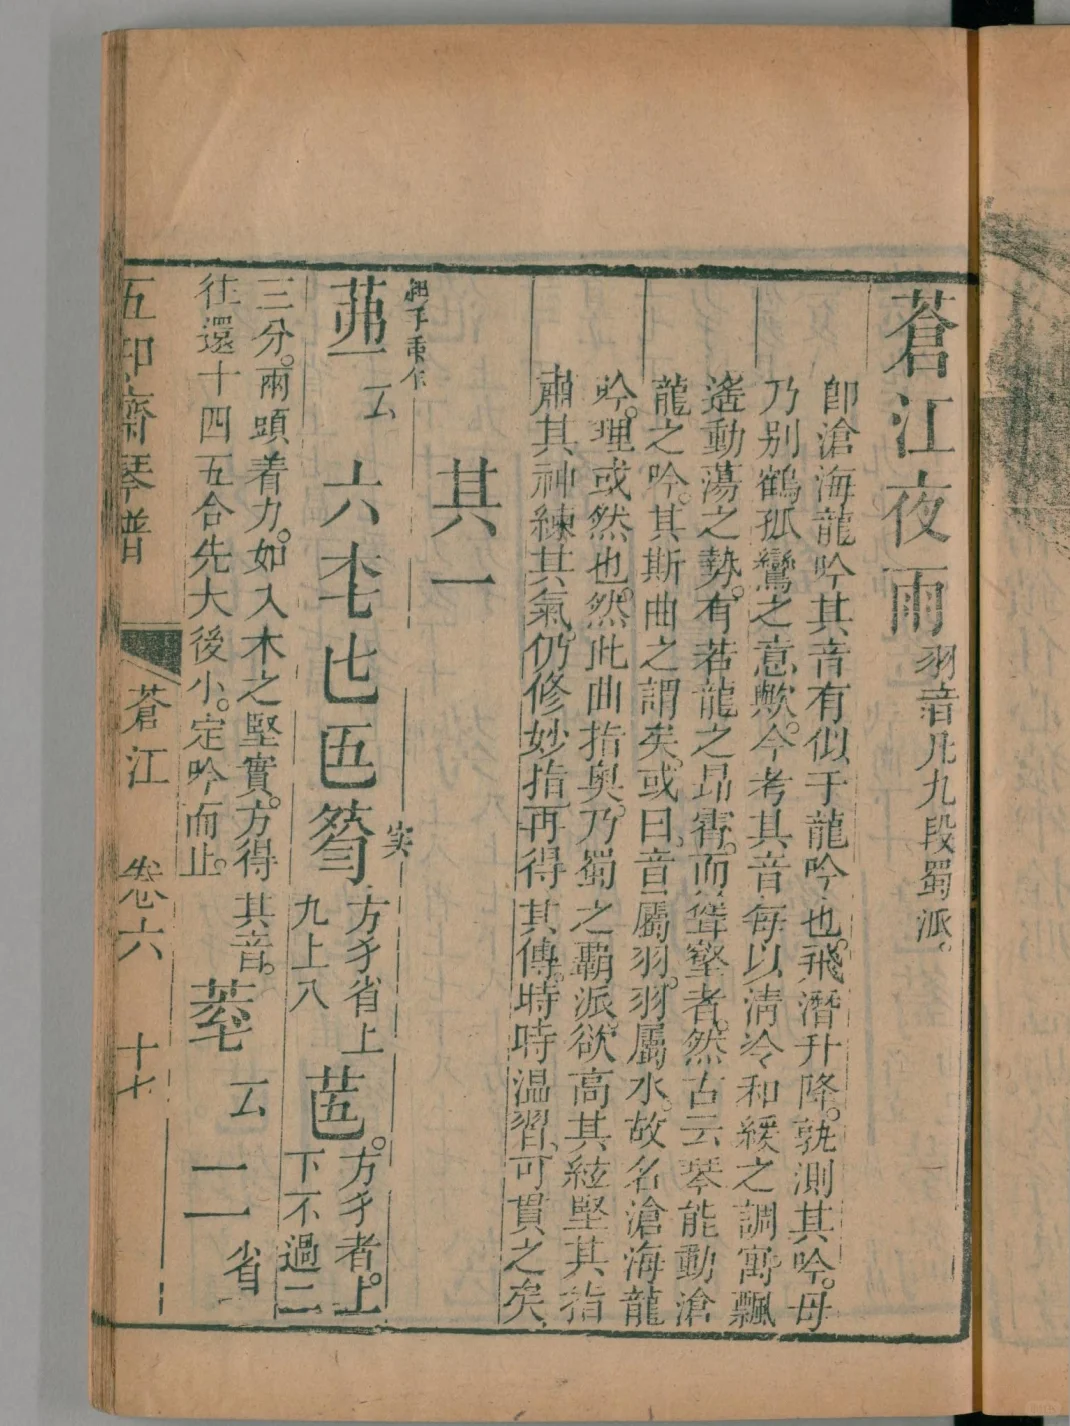 蒼江夜雨 羽音凡九段蜀派。
卽滄海龍吟其音有似于龍吟也。飛潛升降。孰測其吟。毋
乃別鶴孤鸞之意歟。今考其音。每以清冷和緩之調。寓飄
遙動蕩之勢。有若龍之昂霄。而聳壑者。然古云琴能動滄
龍之吟。其斯曲之謂矣。或曰。音屬羽。羽屬水。故名滄海龍
吟。理或然也。然此曲指奥。乃蜀之覇派。欲高其絃堅其指
肅其神練其氣。仍修妙指。再得其傳。時時温習。可貫之矣
其一
云 六 实 方 省上九上八 。方 者。上下不過二
三分。兩頭着力。如入木之堅實。方得其音。 云 二 省
往還十四五合先大後小。定吟而止。
五知齋琴譜 蒼江 卷六 十七